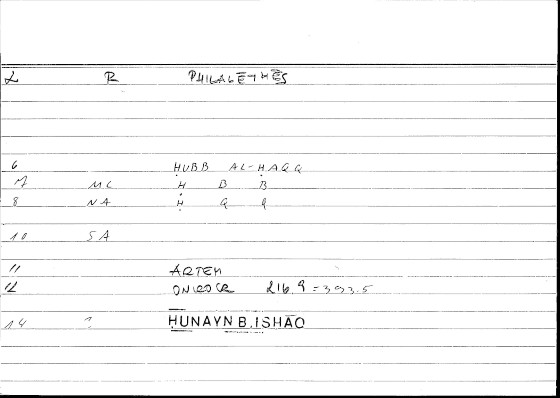 L R PHILALĒTHĒS
6 ḤUBB AL-ḤAQQ
7 ML Ḥ B B
8 NA Ḥ Q Q
10 SA
11 ARTEM
12 ONIROCR 216.9 = 393.5
14 ? ḤUNAYN B. ISḤĀQ